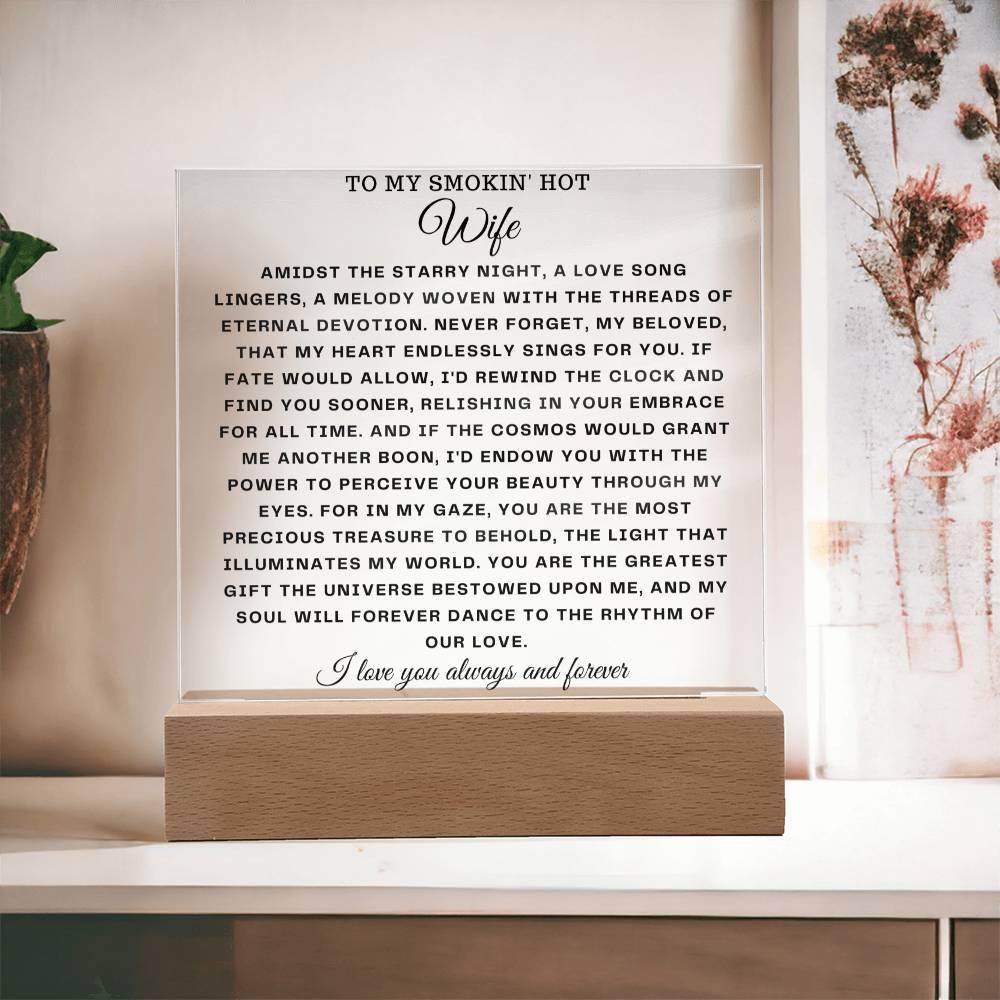 TO MY SMOKIN' HOT
Wife
AMIDST THE STARRY NIGHT, A LOVE SONG
LINGERS, A MELODY WOVEN WITH THE THREADS OF
ETERNAL DEVOTION. NEVER FORGET, MY BELOVED,
THAT MY HEART ENDLESSLY SINGS FOR YOU. IF
FATE WOULD ALLOW, I'D REWIND THE CLOCK AND
FIND YOU SOONER, RELISHING IN YOUR EMBRACE
FOR ALL TIME. AND IF THE COSMOS WOULD GRANT
ME ANOTHER BOON, I'D ENDOW YOU WITH THE
POWER TO PERCEIVE YOUR BEAUTY THROUGH MY
EYES. FOR IN MY GAZE, YOU ARE THE MOST
PRECIOUS TREASURE TO BEHOLD, THE LIGHT THAT
ILLUMINATES MY WORLD. YOU ARE THE GREATEST
GIFT THE UNIVERSE BESTOWED UPON ME, AND MY
SOUL WILL FOREVER DANCE TO THE RHYTHM OF
OUR LOVE.
I love you always and forever